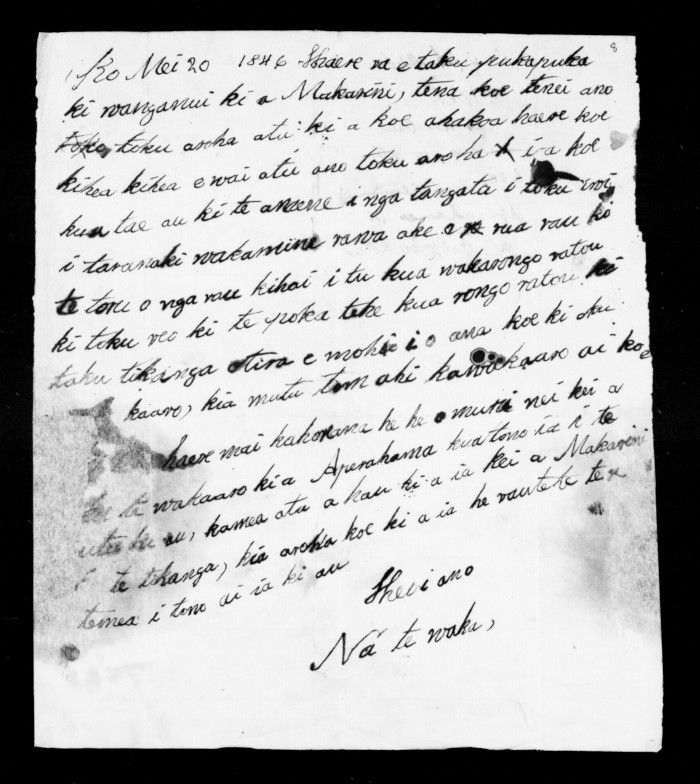 8
Ko Mei 20 1846 Haere ra e taku pukapuka
ki wanganui ki a Makarini, tena koe tenei ano
toku aroha atu ki a koe ahakoa haere koe
kihea kihea e wai atu ano toku aroha i a koe
kua tae au ki te amene i nga tangata i toku iwi
i taranaki wakamine rawa ake e rua rau ko
te toru o nga rau kihai i tu kua wakarongo ratou
ki toku reo ki te poka teke kua rongo ratou ki
taku tikanga otira e mohio ana koe ki oku
kaaro, kia mutu kawakaaro ai koe
haere mai kahorana he he o muri nei kei a
koe te wakaaro ki a Aperahama kua tono ia i te
utu ki au, kamea atu a hau ki a ia kei a Makarini
te tikanga, kia aroha koe ki a ia he rautete te
temea i tono ai ia ki au
Heoi ano
Na te waka,